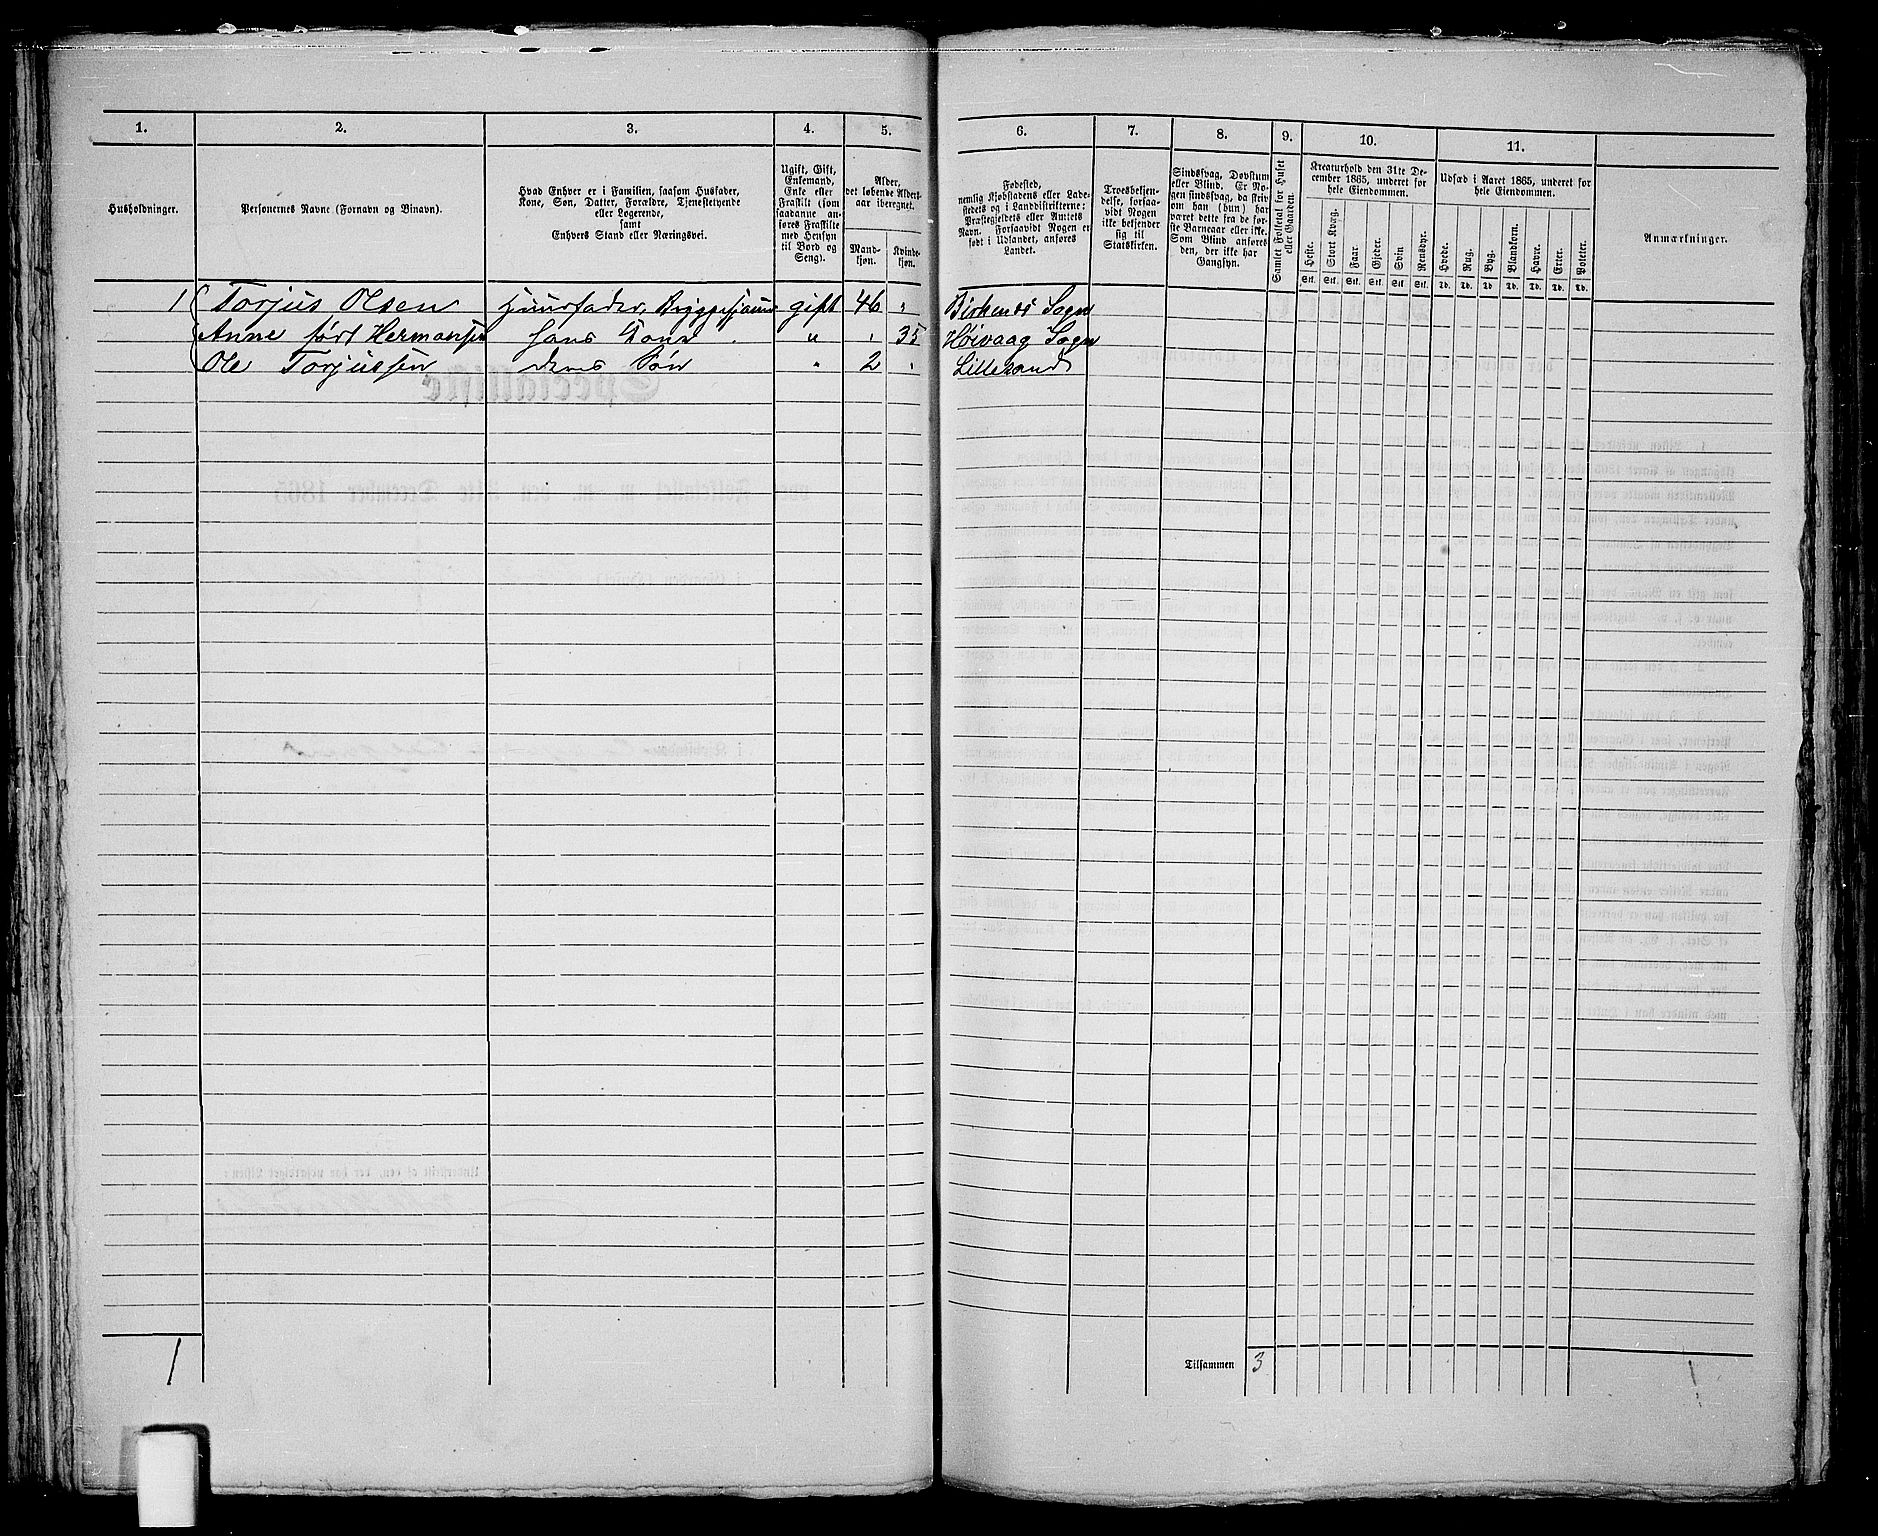 1. 2. 3. 4. 5.
Husholdninger.
Personernes Navne (Fornavn og Binavn).
Hvad Enhver er i Familien, saasom Husfader,
Kone, Søn, Datter, Forældre, Tjenestetyende
eller Logerende,
samt
Enhvers Stand eller Næringsvei.
Ugift, Gift,
Enkemand,
Enke eller
Fraskilt (som
saadanne an-
føres Fraskilte
med Hensyn
til Bord og
Seng).
Alder,
det løbende Alders-
aar iberegnet.
Mand-
kjøn.
Kvinde-
kjøn.
1 Torjus Olsen Huusfader, gift 46 "
Anne født Hermansen hans Kone " " 35
Ole Torjussen deres Søn " 2 "
1
6. 7. 8. 9. 10. 11.
Fødested,
nemlig Kjøbstadens eller Lade-
stedets og i Landdistrikterne:
Præstegjeldets eller Amtets
Navn. Forsaavidt Nogen er
født i Udlandet, anføres
Landet.
Troesbekjen-
delse, forsaa-
vidt Nogen
ikke bekjender
sig til
Statskirken.
Sindssvag, Døvstum
eller Blind. Er No-
gen sindssvag, da skriv
om han (hun) har
været dette fra de før-
ste Barneaar eller ikke.
Som Blind anføres
den, der ikke har
Gangsyn.
Samlet Folketal for Huset
eller Gaarden.
Kreaturhold den 31te De-
cember 1865, underet for
hele Eiendommen.
Heste. Stort Kvæg. Faar. Gjeder. Svin Rensdyr.
Stk. Stk. Stk. Stk. Stk. Stk.
Udsæd i Aaret 1865, underet for
hele Eiendommen.
Hvede. Rug. Byg. Blandkorn. Havre. Erter. Poteter.
Td. Td. Td. Td. Td. Td. Td.
Anmærkninger.
Birkenes Sogn
Høivaag Sogn
Lillesand
Tilsammen 3